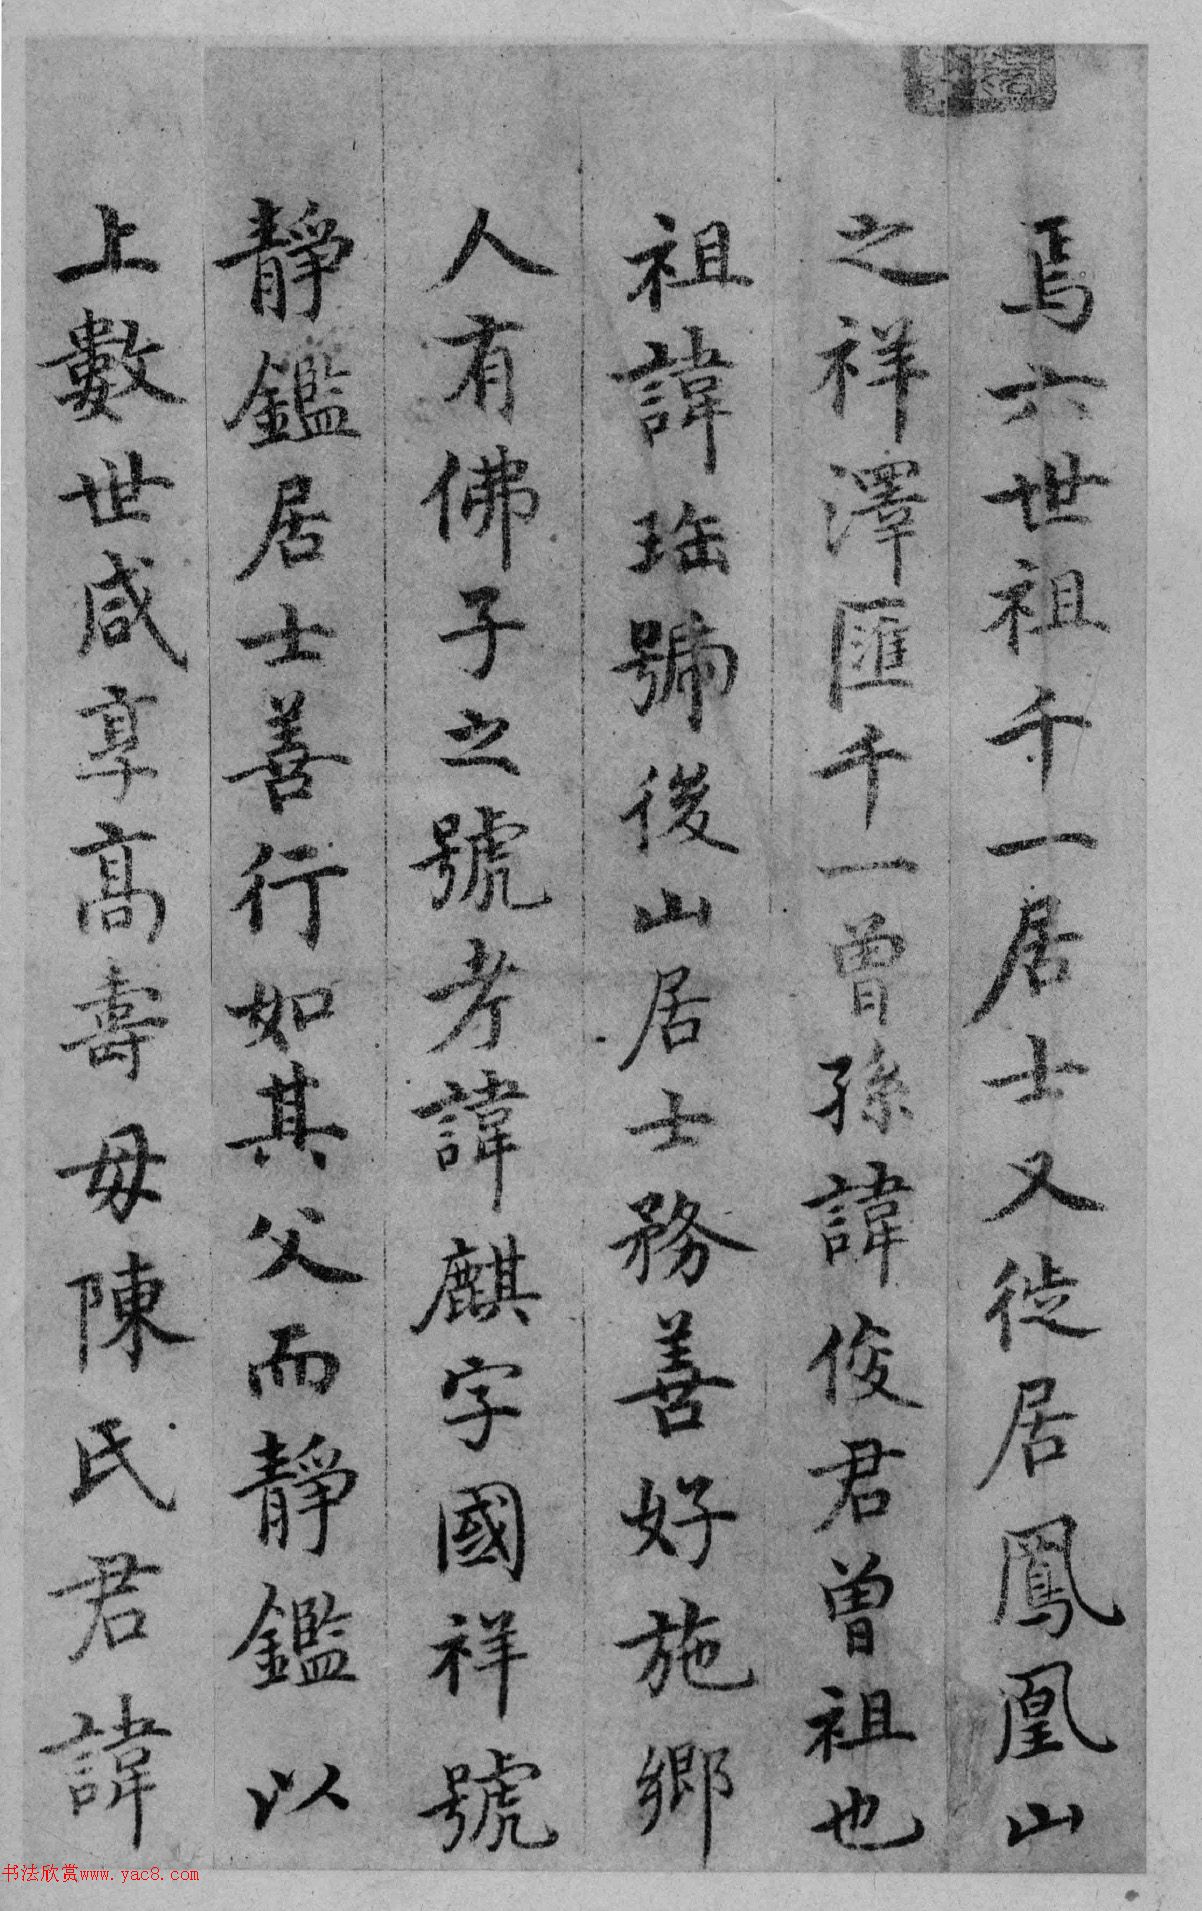 焉六世祖千一居士又徙居鳳凰山
之祥澤匯千一曾孫諱俊君曾祖也
祖諱珤號後山居士務善好施鄉
人有佛子之號考諱麒字國祥號
靜鑑居士善行如其父而靜鑑以
上數世咸享高壽母陳氏君諱
书法欣赏www.yac8.com